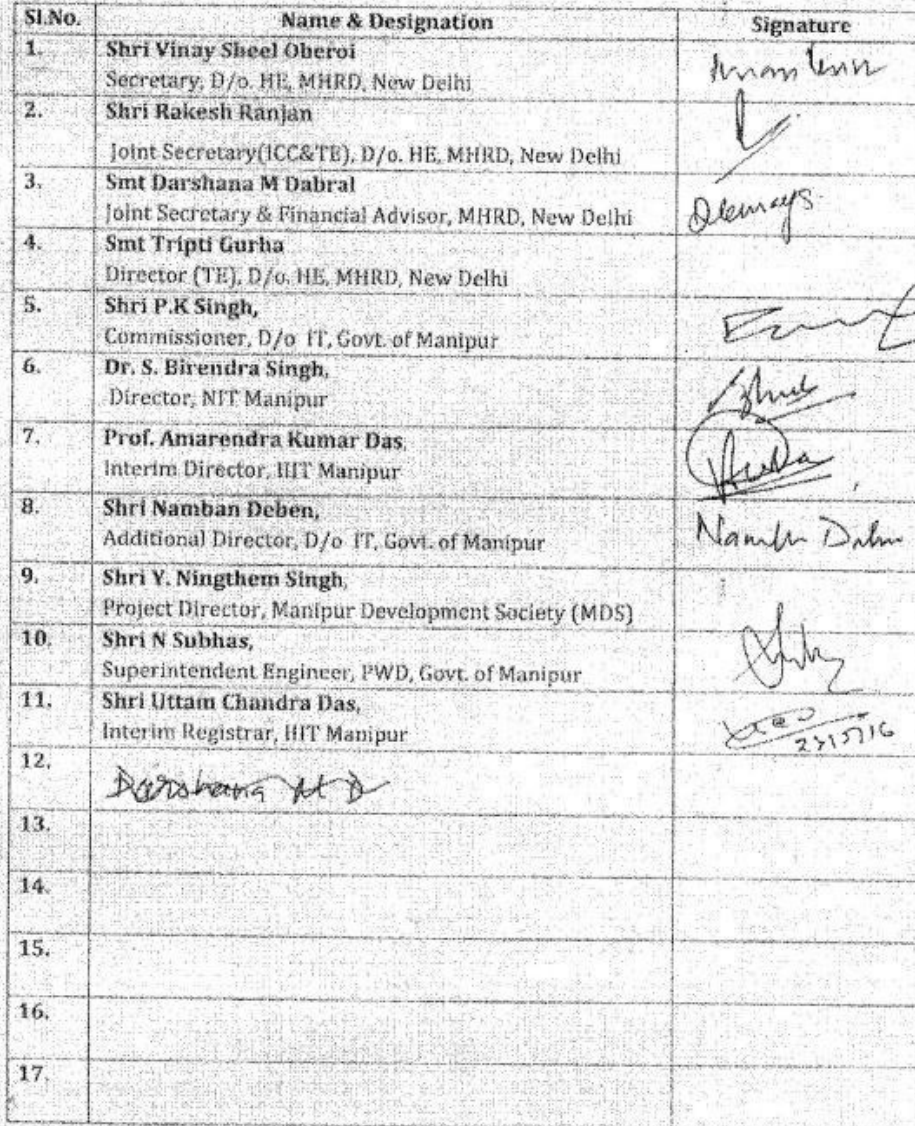 Sl.No. Name & Designation Signature
1. Shri Vinay Sheel Oberoi
Secretary, D/o. HE, MHRD, New Delhi
2. Shri Rakesh Ranjan
Joint Secretary(ICC&TE), D/o. HE, MHRD, New Delhi
3. Smt Darshana M Dabral
Joint Secretary & Financial Advisor, MHRD, New Delhi
4. Smt Tripti Gurha
Director (TE), D/o. HE, MHRD, New Delhi
5. Shri P.K Singh,
Commissioner, D/o IT, Govt. of Manipur
6. Dr. S. Birendra Singh,
Director, NIT Manipur
7. Prof. Amarendra Kumar Das,
Interim Director, IIIT Manipur
8. Shri Namban Deben,
Additional Director, D/o IT, Govt. of Manipur
9. Shri Y. Ningthem Singh,
Project Director, Manipur Development Society (MDS)
10. Shri N Subhas,
Superintendent Engineer, PWD, Govt. of Manipur
11. Shri Uttam Chandra Das,
Interim Registrar, IIIT Manipur
12. Darshana M D
13.
14.
15.
16.
17.